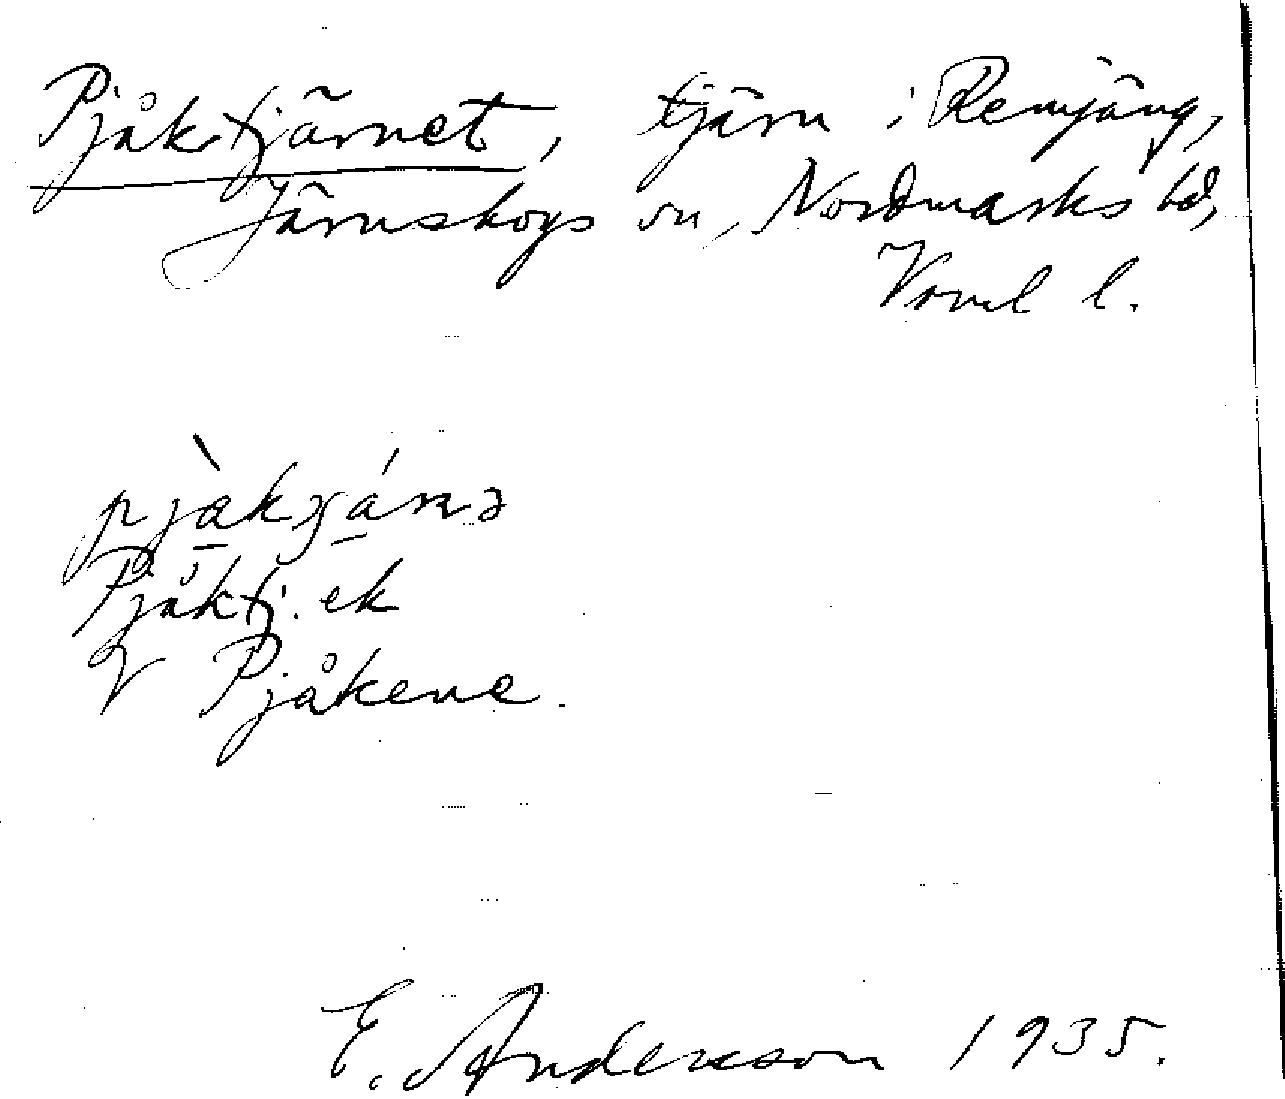 Pjåktjärnet, tjärn i Remjäng,
Järnskogs sn, Nordmarks hd,
Vrml l.
pjàkχánə
Pjåktj. ek
V Pjåkene.
E. Andersson 1935.